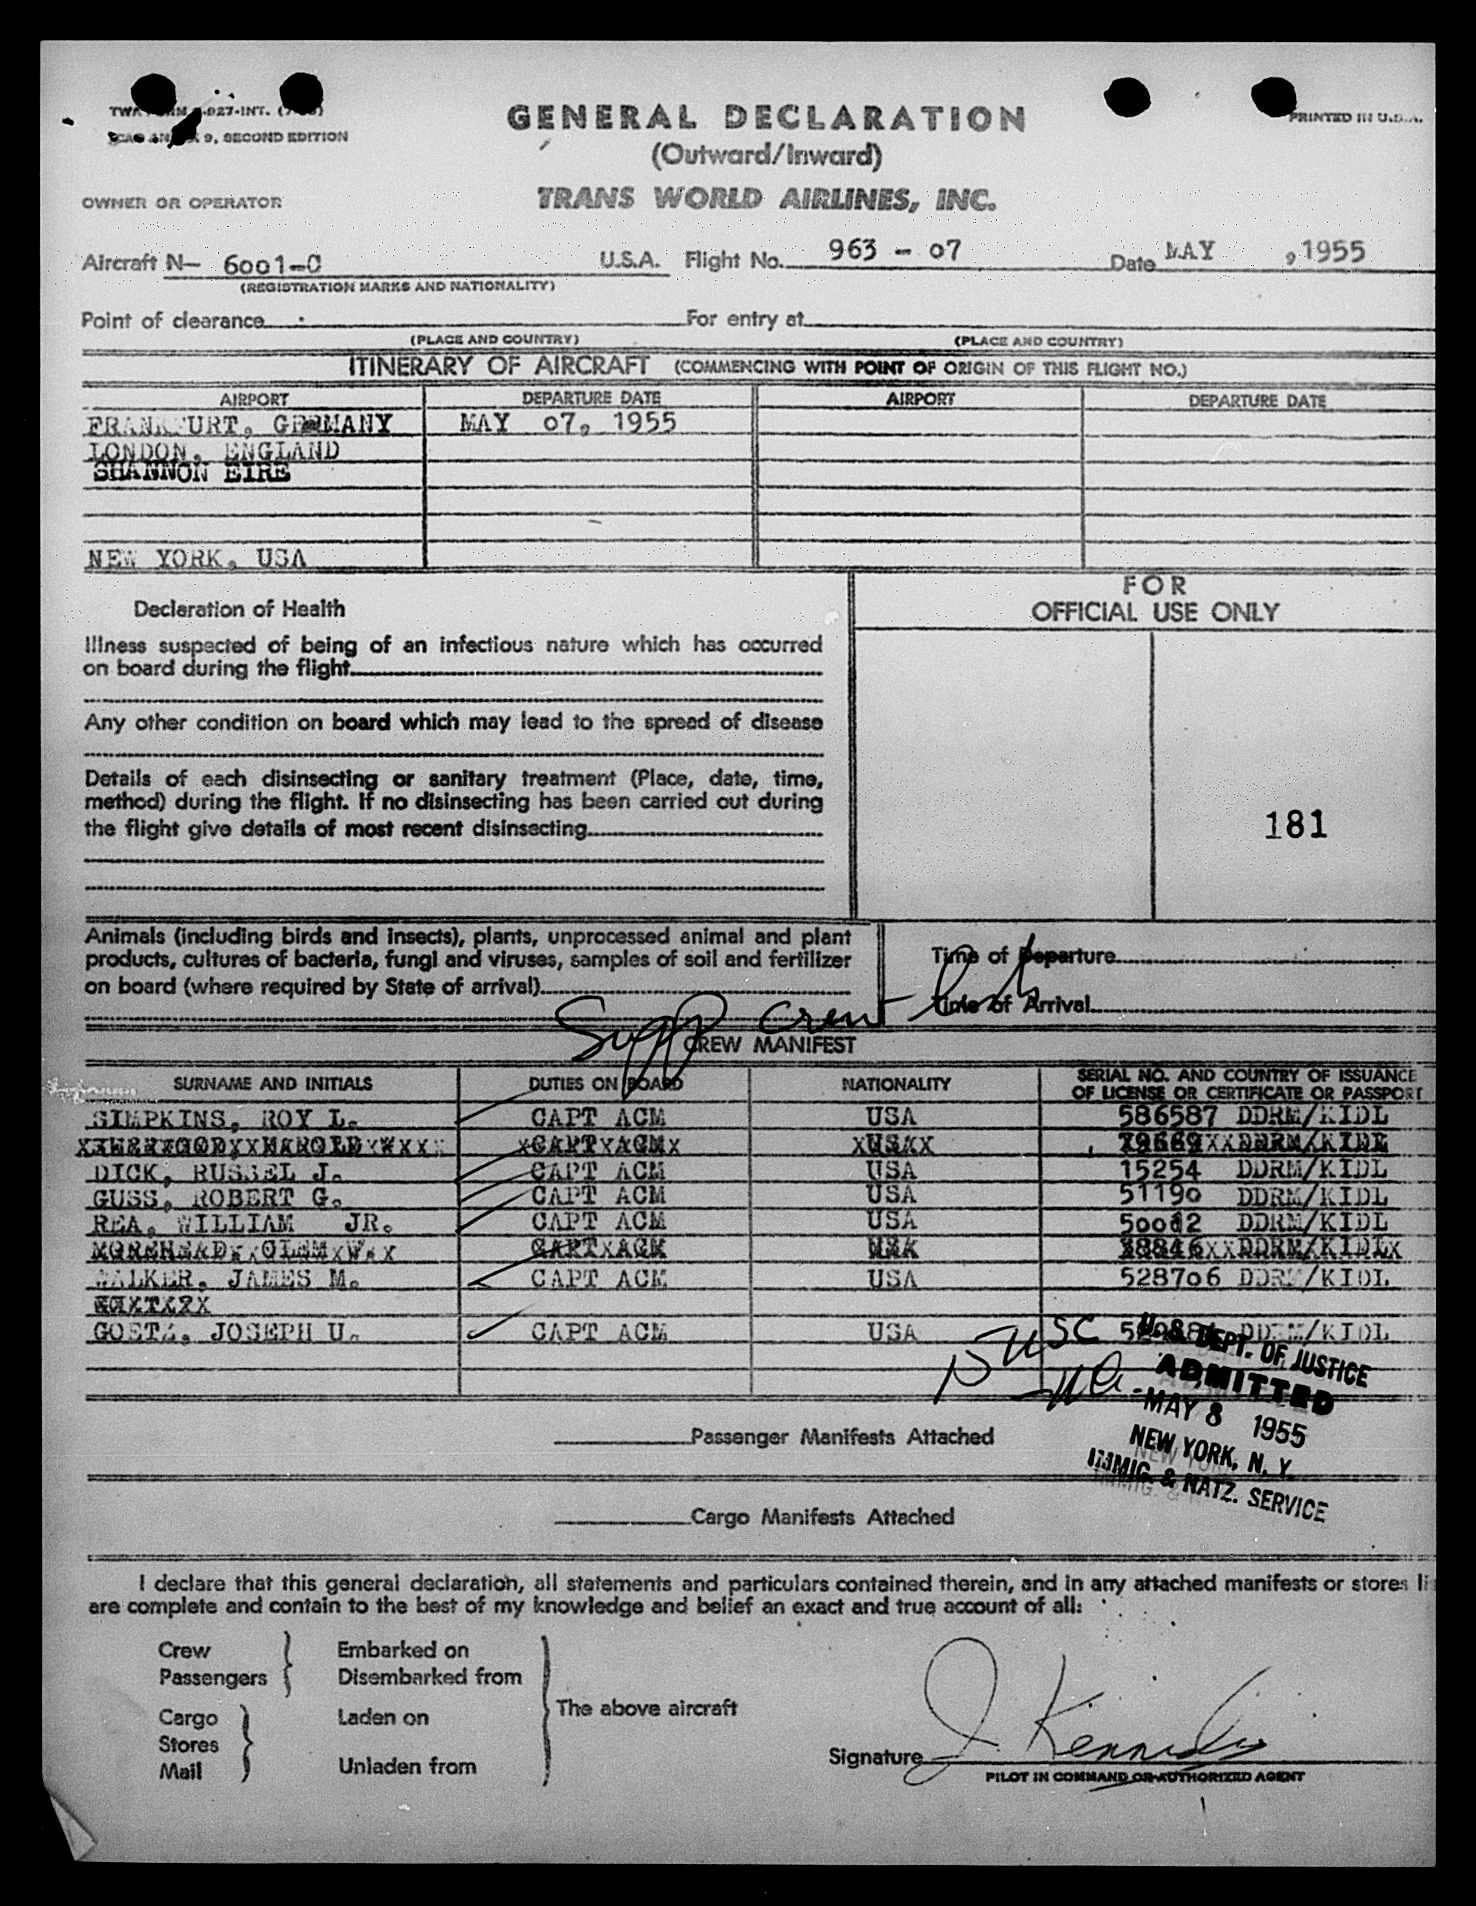 GENERAL DECLARATION
(Outward/Inward)
TRANS WORLD AIRLINES, INC.
9, SECOND EDITION
PRINTED IN U.S.A.
OWNER OR OPERATOR
Aircraft N— 6001-C U.S.A. Flight No. 963 - 07 Date MAY , 1955
(REGISTRATION MARKS AND NATIONALITY)
Point of clearance For entry at
(PLACE AND COUNTRY) (PLACE AND COUNTRY)
ITINERARY OF AIRCRAFT (COMMENCING WITH POINT OF ORIGIN OF THIS FLIGHT NO.)
AIRPORT DEPARTURE DATE AIRPORT DEPARTURE DATE
FRANKFURT, GERMANY MAY 07, 1955
LONDON, ENGLAND
SHANNON EIRE
NEW YORK, USA
Declaration of Health
Illness suspected of being of an infectious nature which has occurred
on board during the flight
Any other condition on board which may lead to the spread of disease
Details of each disinsecting or sanitary treatment (Place, date, time,
method) during the flight. If no disinsecting has been carried out during
the flight give details of most recent disinsecting
FOR
OFFICIAL USE ONLY
181
Animals (including birds and insects), plants, unprocessed animal and plant
products, cultures of bacteria, fungi and viruses, samples of soil and fertilizer
on board (where required by State of arrival)
Time of Departure
Time of Arrival
Supp Crew
CREW MANIFEST
SURNAME AND INITIALS DUTIES ON BOARD NATIONALITY SERIAL NO. AND COUNTRY OF ISSUANCE
OF LICENSE OR CERTIFICATE OR PASSPORT
SIMPKINS, ROY L. CAPT ACM USA 586587 DDRM/KIDL
CAPT ACM USA DDRM/KIDL
DICK, RUSSEL J. CAPT ACM USA 15254 DDRM/KIDL
GUSS, ROBERT G. CAPT ACM USA 51190 DDRM/KIDL
REA, WILLIAM JR. CAPT ACM USA DDRM/KIDL
MOREHEAD, CLEM W. CAPT ACM DDRM/KIDL
WALKER, JAMES M. CAPT ACM USA 528706 DDRM/KIDL
GOETZ, JOSEPH U. CAPT ACM USA DDRM/KIDL
USC
U.S. DEPT. OF JUSTICE
ADMITTED
MAY 8 1955
NEW YORK, N. Y.
IMMIG. & NATZ. SERVICE
Passenger Manifests Attached
Cargo Manifests Attached
I declare that this general declaration, all statements and particulars contained therein, and in any attached manifests or stores
are complete and contain to the best of my knowledge and belief an exact and true account of all:
Crew Embarked on
Passengers Disembarked from
The above aircraft
Cargo Laden on
Stores
Mail Unladen from
Signature J. Kennedy
PILOT IN COMMAND OR AUTHORIZED AGENT